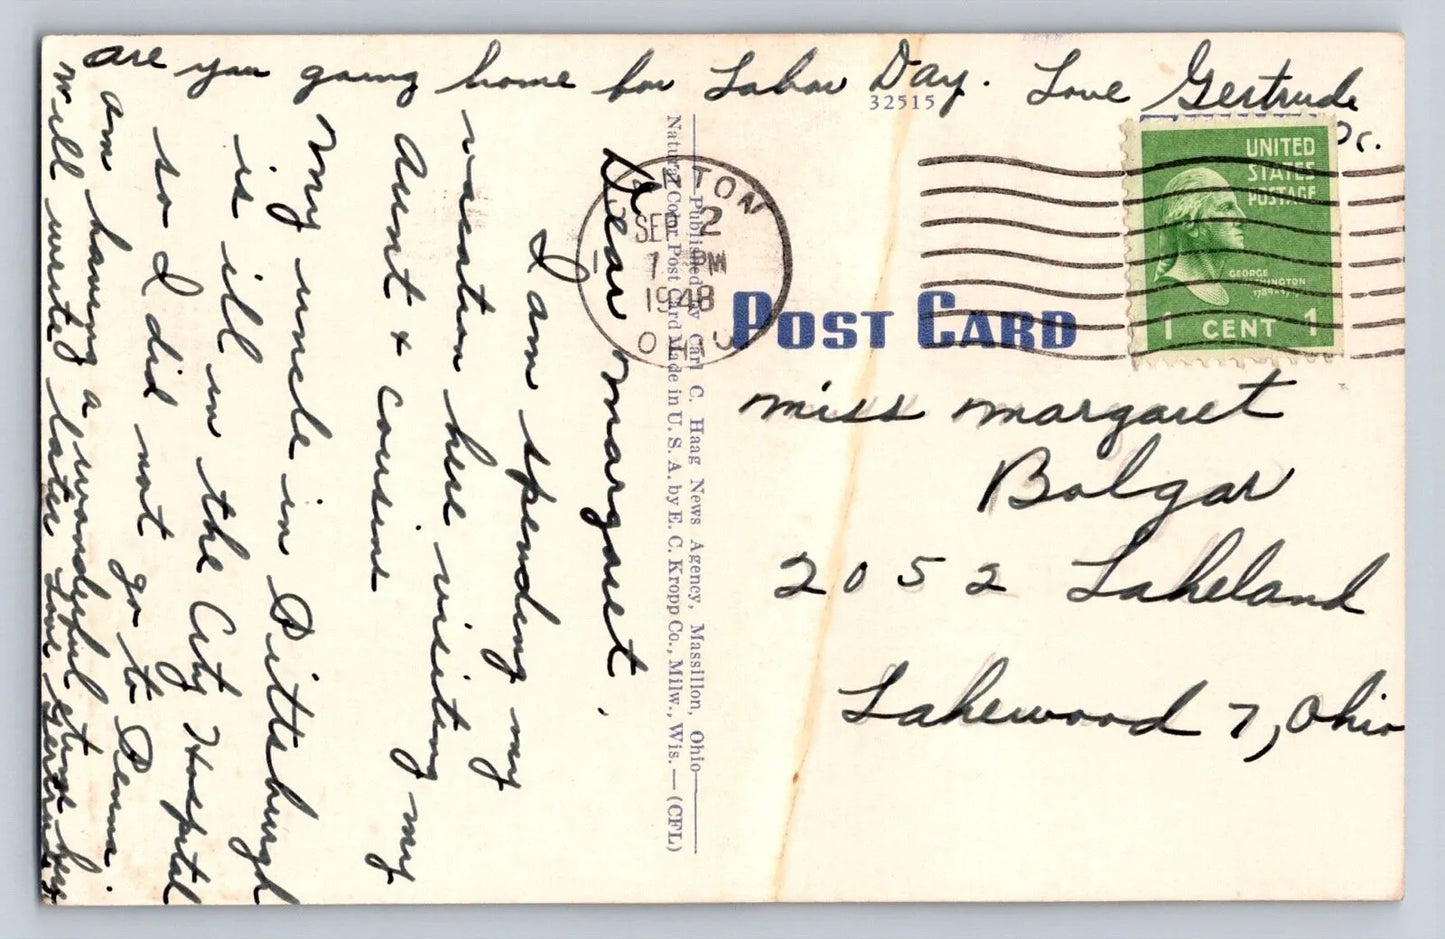 are you going home for Labor Day. Love Gertrude
32515
Dc.
UNITED
STATES
POSTAGE
GEORGE
WASHINGTON
1 CENT 1
TON
SEP 2
1 PM
1948
POST CARD
Miss Margaret
Bolgar
2052 Lakeland
Lakewood 7, Ohio
Published by Carl C. Haag News Agency, Massillon, Ohio
Natural Color Post Card Made in U. S. A. by E. C. Kropp Co., Milw., Wis. — (CFL)
Dear Margaret.
I am spending my
vacation here visiting my
Aunt & cousins
My uncle in Pittsburgh
is ill in the City Hospital
so I did not go to Penna.
am having a wonderful time here
Will write later Love Gertrude